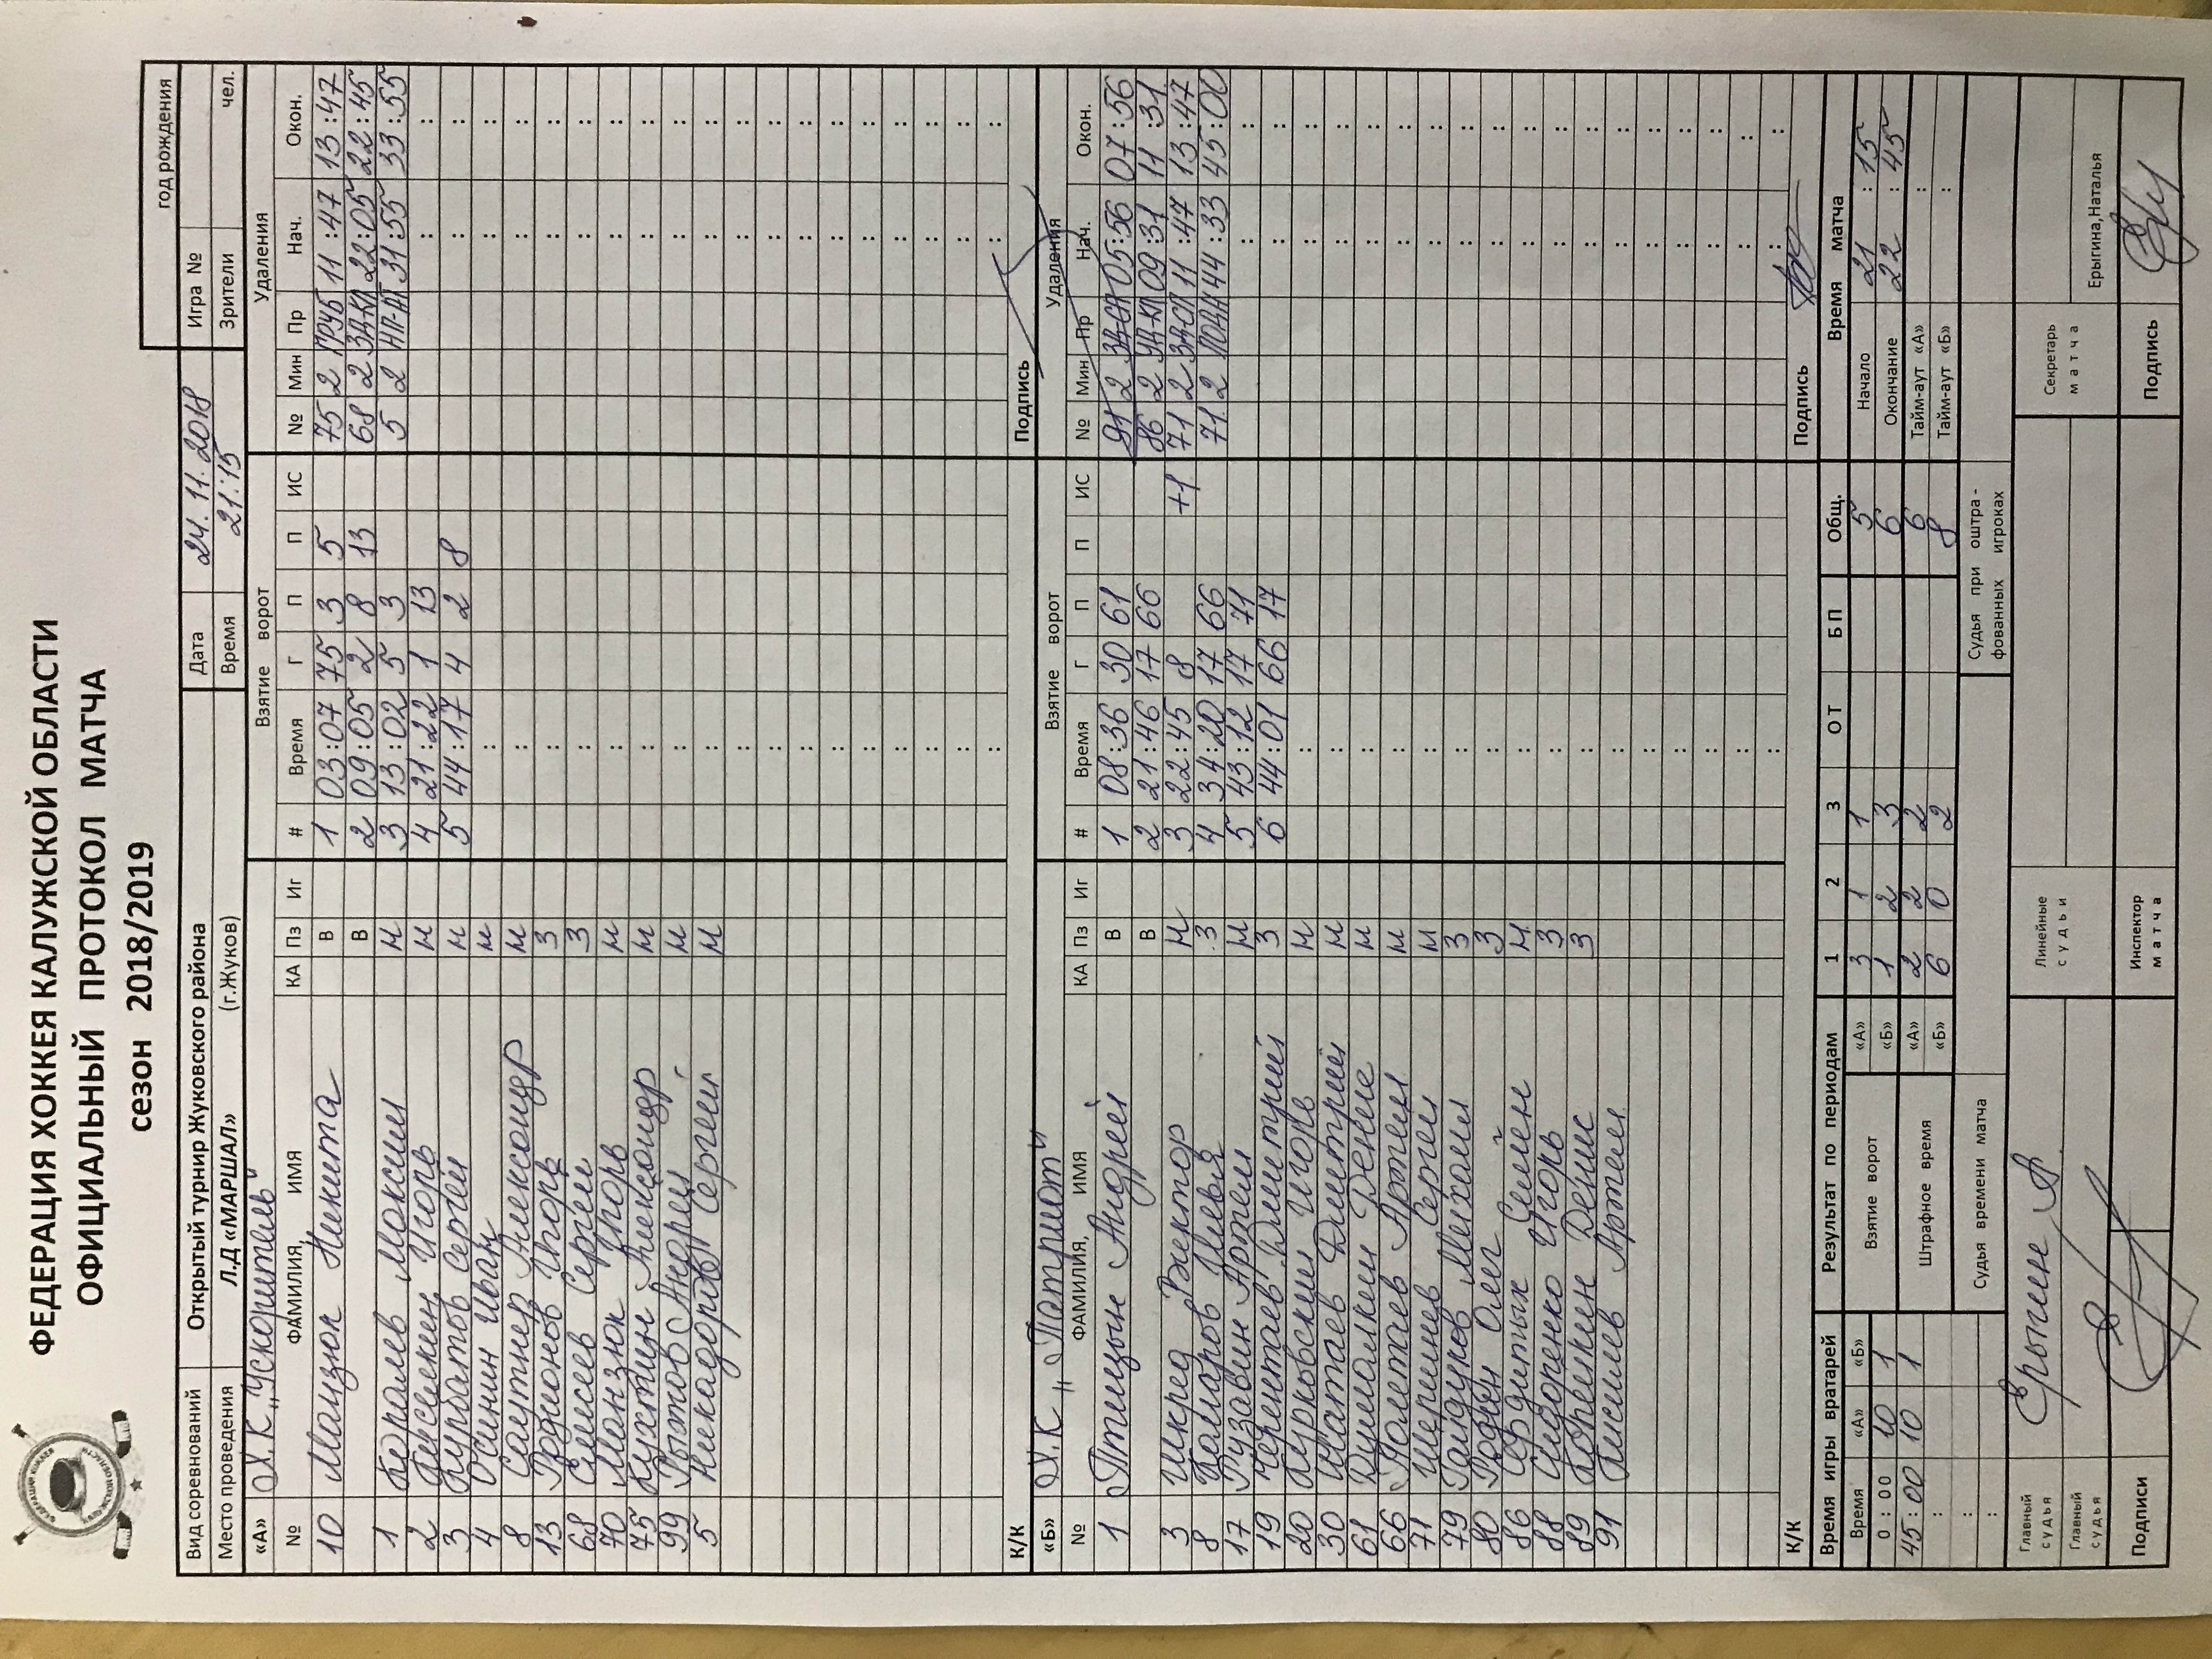 ФЕДЕРАЦИЯ ХОККЕЯ КАЛУЖСКОЙ ОБЛАСТИ
ОФИЦИАЛЬНЫЙ ПРОТОКОЛ МАТЧА
сезон 2018/2019
год рождения
Вид соревнований Открытый турнир Жуковского района Дата 24.11.2018 Игра №
Место проведения Л.Д «МАРШАЛ» (г.Жуков) Время 21:15 Зрители чел.
«А» Х.К „Ускоритель" Взятие ворот Удаления
№ ФАМИЛИЯ, ИМЯ КА Пз Иг # Время Г П П ИС № Мин Пр Нач. Окон.
10 Манзюк Никита В 1 03:07 75 3 5 75 2 ГРУБ 11:47 13:47
В 2 09:05 2 8 13 68 2 ЗД-КЛ 22:05 22:45
1 Королев Максим Н 3 13:02 5 3 5 2 НП-АТ 31:55 33:55
2 Игорь Н 4 21:22 1 13
3 Курбатов Сергей Н 5 44:17 4 2 8
4 Осинин Иван Н
8 Саутнер Александр Н
13 Родионов Игорь З
68 Елисеев Сергей З
70 Манзюк Игорь Н
75 Кухтин Александр Н
99 Рытов Андрей Н
5 Никадоров Сергей Н
К/К Подпись
«Б» Х.К „Патриот" Взятие ворот Удаления
№ ФАМИЛИЯ, ИМЯ КА Пз Иг # Время Г П П ИС № Мин Пр Нач. Окон.
1 Птицын Андрей В 1 08:36 30 61 91 2 05:56 07:56
В 2 21:46 17 66 86 2 УД-КЛ 09:31 11:31
3 Шкред Виктор Н 3 22:45 8 +1 71 2 11:47 13:47
8 Комаров Илья З 4 34:20 17 66 71 2 44:33 45:00
17 Рузавин Артем Н 5 43:12 17 71
19 Черентаев Дмитрий З 6 44:01 66 17
20 Игорь Н
30 Шатаев Дмитрий Н
61 Думалкин Денис Н
66 Полетаев Артем Н
71 Шершнев Сергей Н
79 Гайдуков Михаил З
80 Родин Олег З
86 Сердитых Семен Н
88 Сидоренко Игорь З
89 Денис З
91 Артем
К/К Подпись
Время игры вратарей Результат по периодам 1 2 3 ОТ БП Общ. Время матча
Время «А» «Б» Взятие ворот «А» 3 1 1 5 Начало 21:15
0:00 10 1 «Б» 1 2 3 6 Окончание 22:45
45:00 10 1 Штрафное время «А» 2 2 2 6 Тайм-аут «А» :
: «Б» 6 0 2 8 Тайм-аут «Б» :
: Судья времени матча Судья при оштрафованных игроках
:
Главный судья Ерыгин А. Линейные судьи Секретарь матча
Главный судья Ерыгина,Наталья
Подписи Инспектор матча Подпись